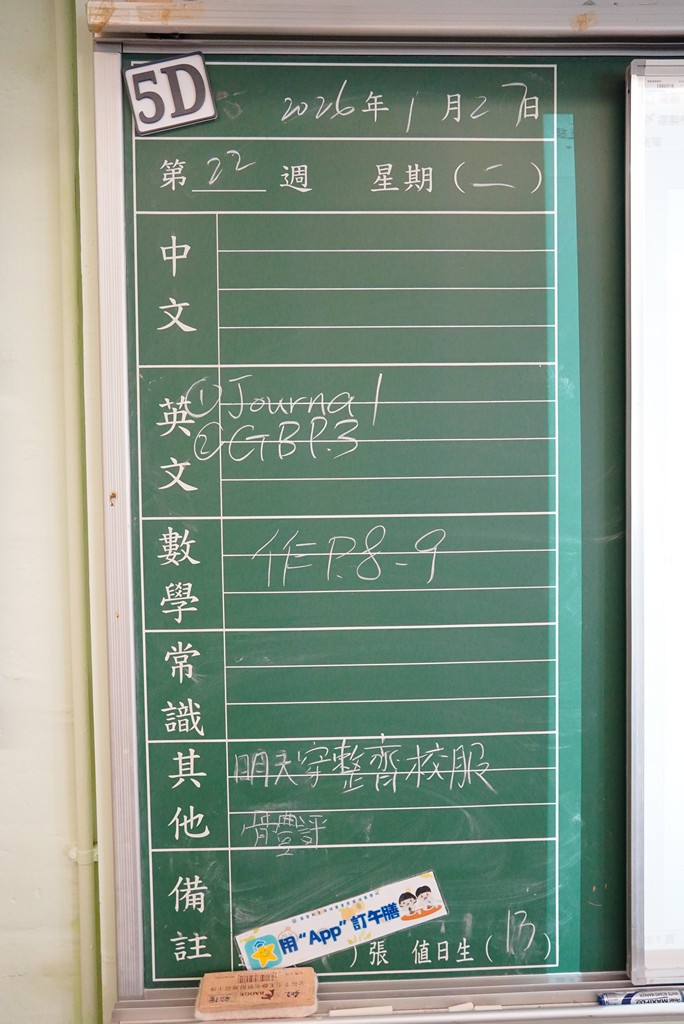 5D
2026年1月27日
第22週 星期（二）
中文
英文
①Journal
②GB P.3
數學
作P.8-9
常識
其他
明天穿整齊校服
體評
備註
用“App”訂午膳
）張 值日生（13）